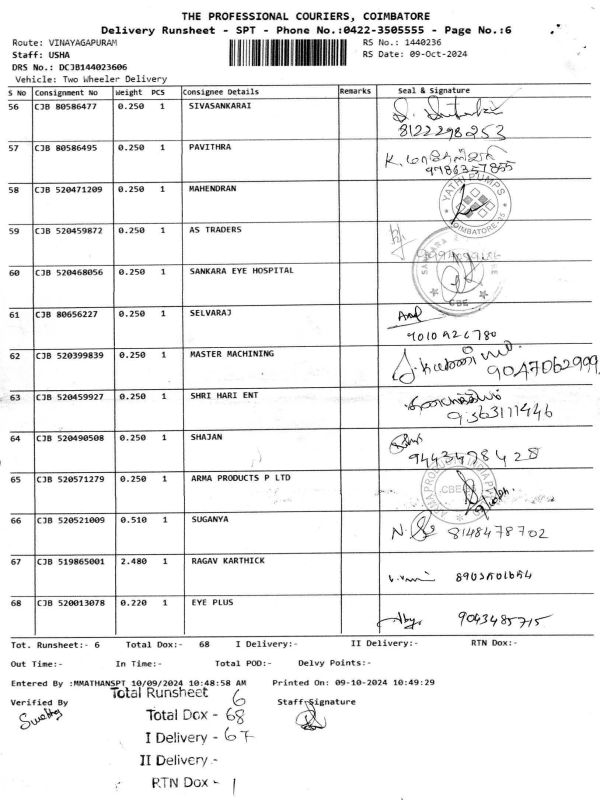 THE PROFESSIONAL COURIERS, COIMBATORE
Delivery Runsheet - SPT - Phone No.:0422-3505555 - Page No.:6
Route: VINAYAGAPURAM RS No.: 1440236
Staff: USHA RS Date: 09-Oct-2024
DRS No.: DCJB144023606
Vehicle: Two Wheeler Delivery
S No Consignment No Weight PCS Consignee Details Remarks Seal & Signature
56 CJB 80586477 0.250 1 SIVASANKARAI
8122298253
57 CJB 80586495 0.250 1 PAVITHRA
9786357855
58 CJB 520471209 0.250 1 MAHENDRAN
YATHI PUMPS
COIMBATORE-35
59 CJB 520459872 0.250 1 AS TRADERS
60 CJB 520468056 0.250 1 SANKARA EYE HOSPITAL
CBE
61 CJB 80656227 0.250 1 SELVARAJ
62 CJB 520399839 0.250 1 MASTER MACHINING
9047062999
63 CJB 520459927 0.250 1 SHRI HARI ENT
9363111446
64 CJB 520490508 0.250 1 SHAJAN
9443478428
65 CJB 520571279 0.250 1 ARMA PRODUCTS P LTD
CBE
66 CJB 520521009 0.510 1 SUGANYA
8148478702
67 CJB 519865001 2.480 1 RAGAV KARTHICK
68 CJB 520013078 0.220 1 EYE PLUS
9043485715
Tot. Runsheet:- 6 Total Dox:- 68 I Delivery:- II Delivery:- RTN Dox:-
Out Time:- In Time:- Total POD:- Delvy Points:-
Entered By :MMATHANSPT 10/09/2024 10:48:58 AM Printed On: 09-10-2024 10:49:29
Verified By Staff Signature
Total Runsheet 6
Total Dox - 68
I Delivery - 67
II Delivery -
RTN Dox - 1